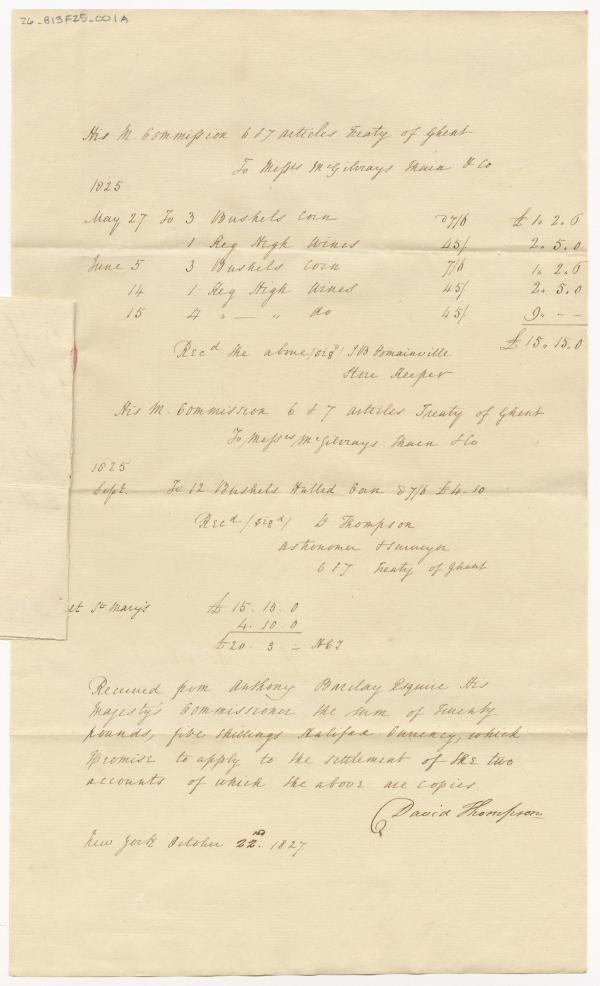 26-B13F25-001A
His M. Commission 6 & 7 articles Treaty of Ghent
To Messrs McGilvrays Thain & Co
1825
May 27 To 3 Bushels Corn @ 7/6 £ 1. 2. 6
1 Keg High Wines 45/ 2. 5. 0
June 5 3 Bushels Corn 7/6 1. 2. 6
14 1 Keg High Wines 45/ 2. 5. 0
15 4 " — " do 45/ 9. - -
£ 15. 15. 0
Recd the above /sigd/ J B Domainville
Store Keeper
His M. Commission 6 & 7 articles Treaty of Ghent
To Messrs McGilvrays Thain & Co
1825
Sept. To 12 Bushels Hulled Corn @ 7/6 £ 4. 10
Recd /sigd/ D Thompson
Astronomer & Surveyor
6 & 7 Treaty of Ghent
at St Mary's £ 15. 15. 0
4. 10. 0
£ 20. 5 - HCy
Received from Anthony Barclay Esquire His
Majesty's Commissioner the sum of Twenty
pounds, five shillings Halifax Currency, which
I promise to apply to the settlement of the two
accounts of which the above are copies.
David Thompson
New York October 22nd. 1827